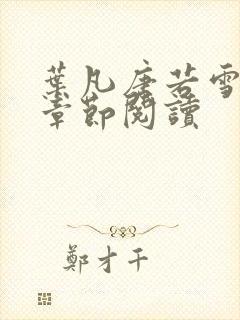 葉凡唐若雪
章節閱讀
鄭才千